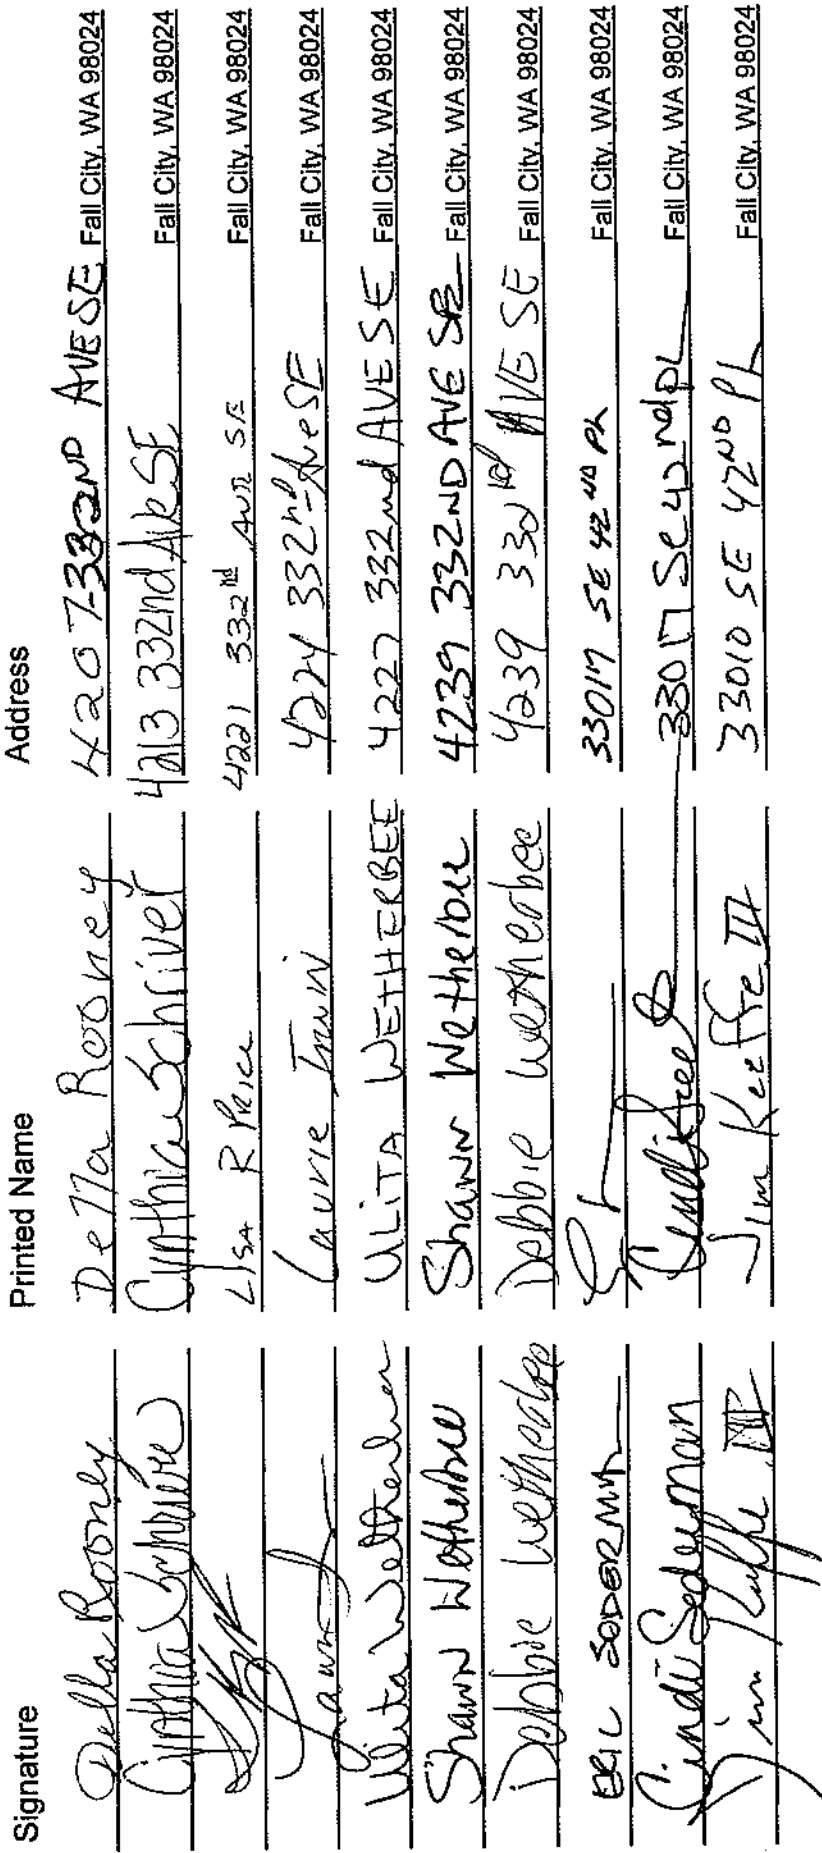 Signature Printed Name Address
Della Rooney Della Rooney 4207-332ND AVE SE Fall City, WA 98024
Cynthia Schriver Cynthia Schriver 4213 332nd Ave SE Fall City, WA 98024
LISA R PRICE 4221 332nd AVE SE Fall City, WA 98024
Laurie Irwin 4224 332nd Ave SE Fall City, WA 98024
Ulita Wetherbee ULITA WETHERBEE 4227 332nd AVE SE Fall City, WA 98024
Shawn Wetherbee Shawn Wetherbee 4239 332ND AVE SE Fall City, WA 98024
Debbie Wetherbee Debbie Wetherbee 4239 332nd AVE SE Fall City, WA 98024
ERIC SODERMAN 33017 SE 42ND PL Fall City, WA 98024
Cindi Soderman 33017 SE 42nd PL Fall City, WA 98024
Jim Keffe III Jim Keffe III 33010 SE 42ND PL Fall City, WA 98024